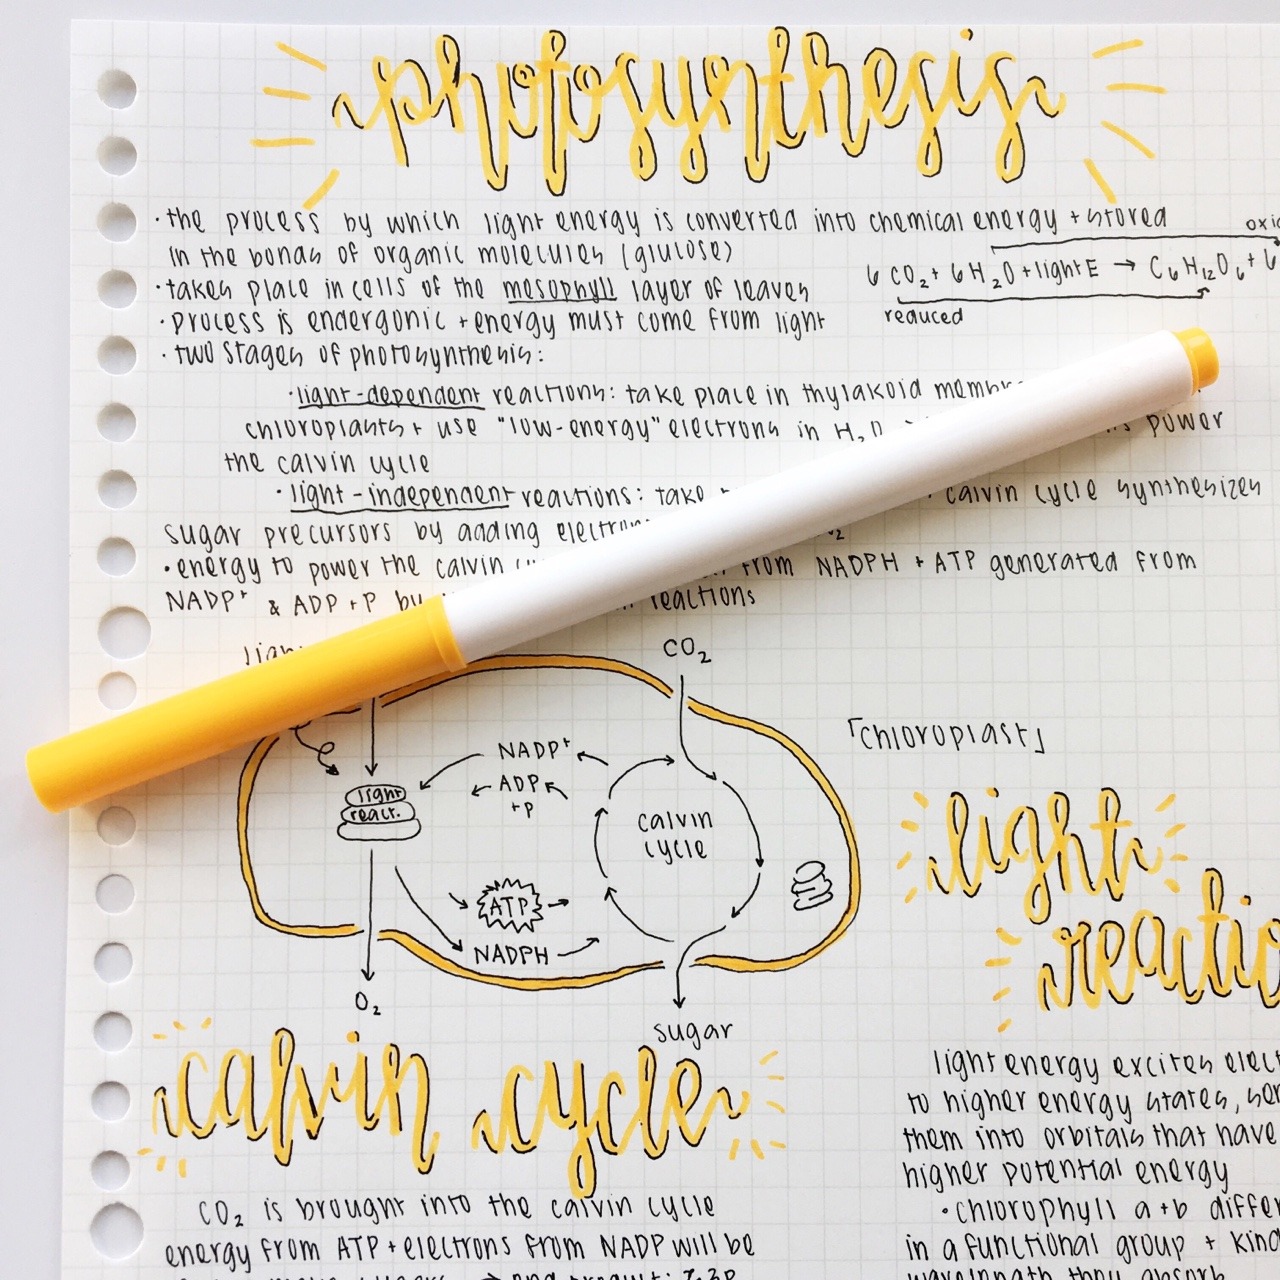 photosynthesis
· the process by which light energy is converted into chemical energy + stored
in the bonds of organic molecules (glucose)
oxi
6 CO₂ + 6 H₂O + light E → C₆H₁₂O₆ + 6
reduced
· takes place in cells of the mesophyll layer of leaves
· process is endergonic + energy must come from light
· two stages of photosynthesis:
· light-dependent reactions: take place in thylakoid
chloroplasts + use "low-energy" electrons in H₂O power
the calvin cycle
· light-independent reactions: take calvin cycle synthesizes
sugar precursors by adding
· energy to power the calvin from NADPH + ATP generated from
NADP⁺ & ADP + P by reactions
CO₂
「chloroplast」
NADP⁺
ADP
+P
light
react.
calvin
cycle
ATP
NADPH
O₂
sugar
light
calvin cycle
CO₂ is brought into the calvin cycle
energy from ATP + electrons from NADP will be
light energy excites
to higher energy states,
them into orbitals that have
higher potential energy
· chlorophyll a + b
in a functional group +